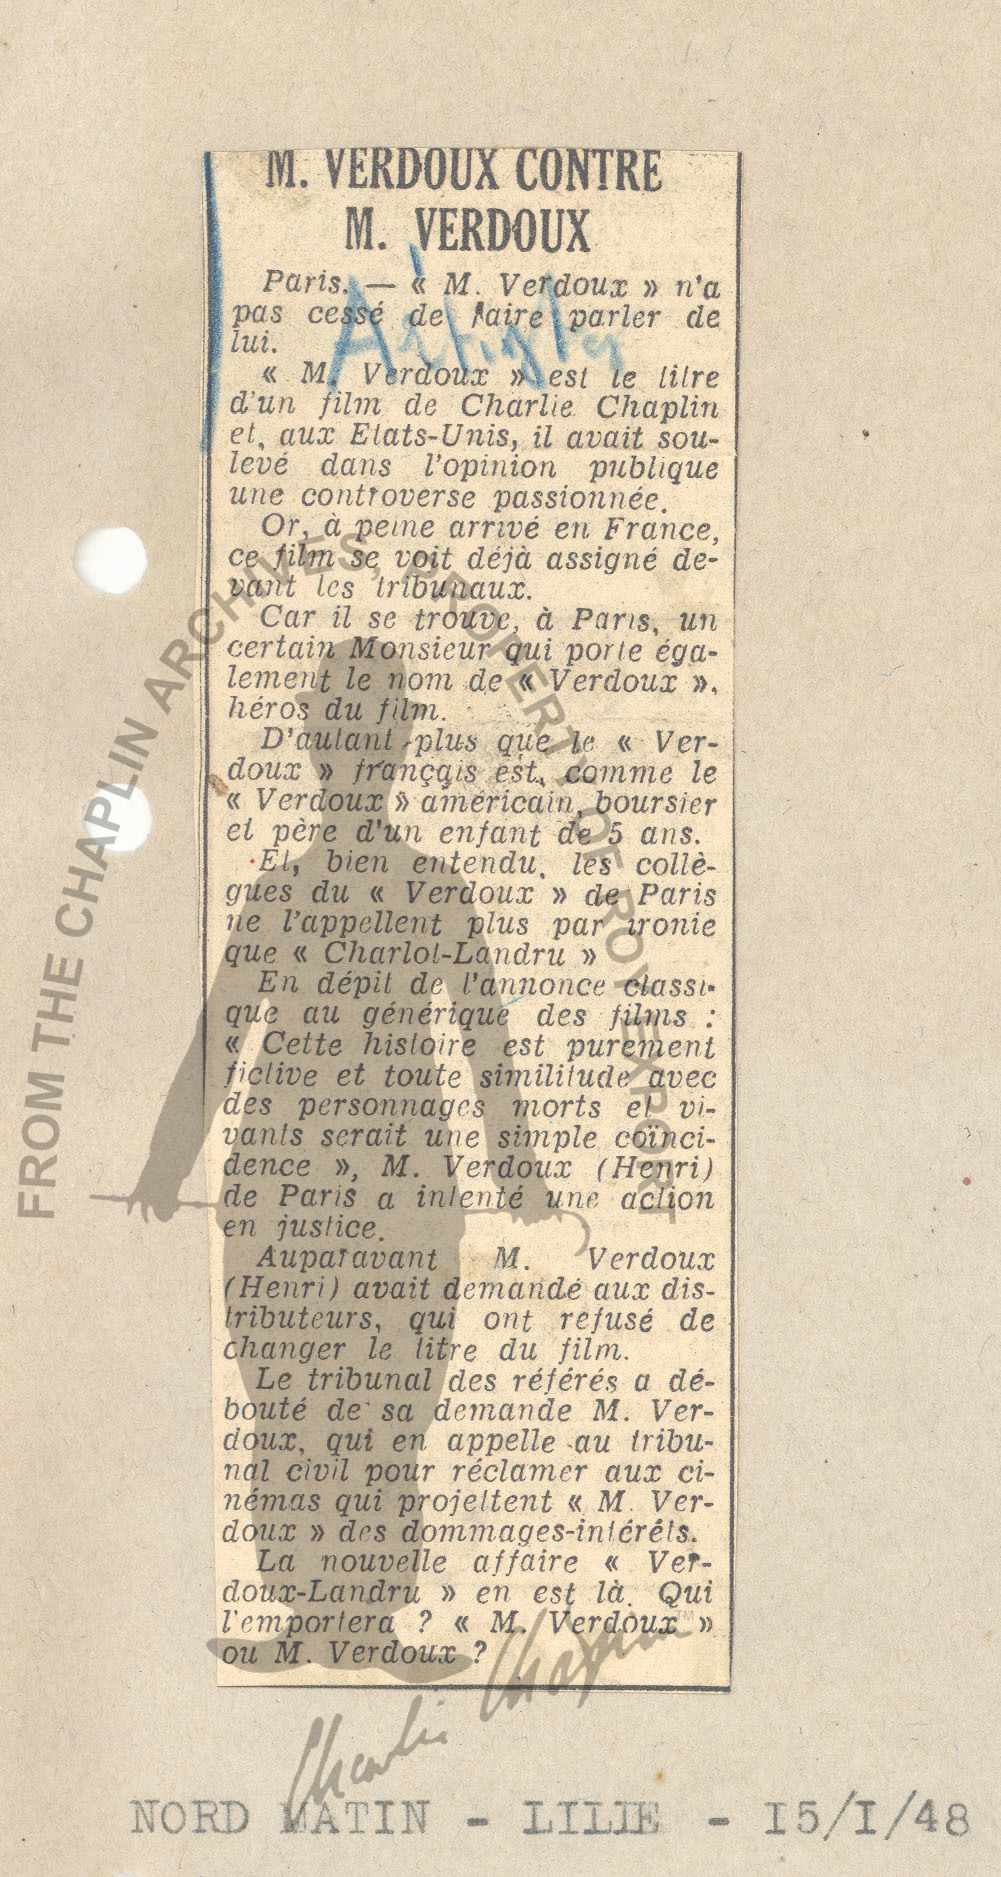 M. VERDOUX CONTRE
M. VERDOUX
Paris. — « M. Verdoux » n'a
pas cessé de faire parler de
lui.
« M. Verdoux » est le titre
d'un film de Charlie Chaplin
et, aux Etats-Unis, il avait sou-
levé dans l'opinion publique
une controverse passionnée.
Or, à peine arrivé en France,
ce film se voit déjà assigné de-
vant les tribunaux.
Car il se trouve, à Paris, un
certain Monsieur qui porte éga-
lement le nom de « Verdoux »,
héros du film.
D'autant plus que le « Ver-
doux » français est, comme le
« Verdoux » américain, boursier
et père d'un enfant de 5 ans.
Et, bien entendu, les collè-
gues du « Verdoux » de Paris
ne l'appellent plus par ironie
que « Charlot-Landru »
En dépit de l'annonce classi-
que au générique des films :
« Cette histoire est purement
fictive et toute similitude avec
des personnages morts et vi-
vants serait une simple coïnci-
dence », M. Verdoux (Henri)
de Paris a intenté une action
en justice.
Auparavant M. Verdoux
(Henri) avait demandé aux dis-
tributeurs, qui ont refusé de
changer le titre du film.
Le tribunal des référés a dé-
bouté de sa demande M. Ver-
doux, qui en appelle au tribu-
nal civil pour réclamer aux ci-
némas qui projettent « M. Ver-
doux » des dommages-intérêts.
La nouvelle affaire « Ver-
doux-Landru » en est là. Qui
l'emportera ? « M. Verdoux »
ou M. Verdoux ?
FROM THE CHAPLIN ARCHIVES, PROPERTY OF ROY EXPORT
Charlie Chaplin TM
NORD MATIN - LILLE - I5/I/48